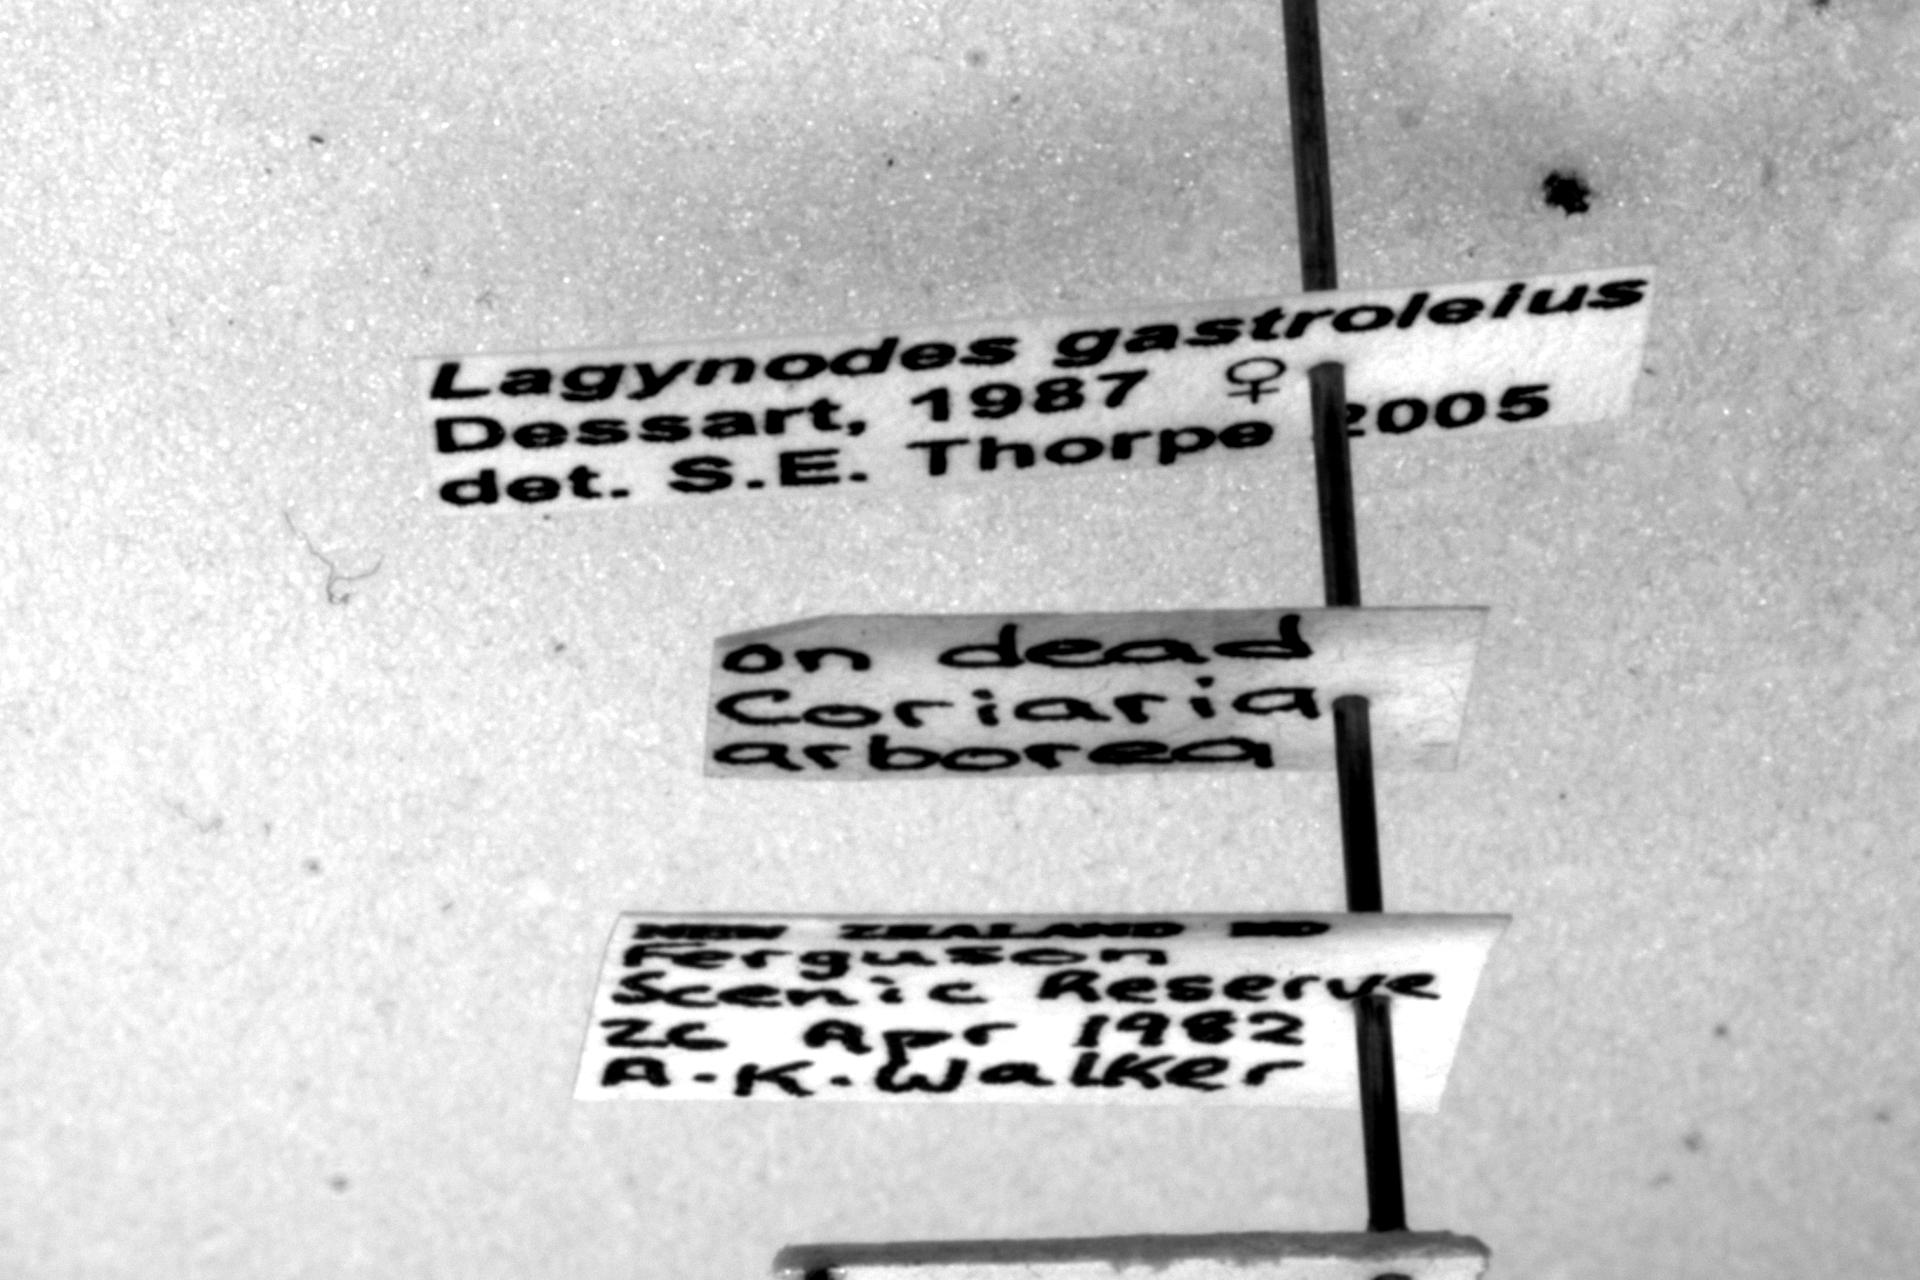 Lagynodes gastroleius
Dessart, 1987 ♀
det. S.E. Thorpe 2005
on dead
Coriaria
arborea
NEW ZEALAND ND
Ferguson
Scenic Reserve
26 Apr 1982
A.K. Walker